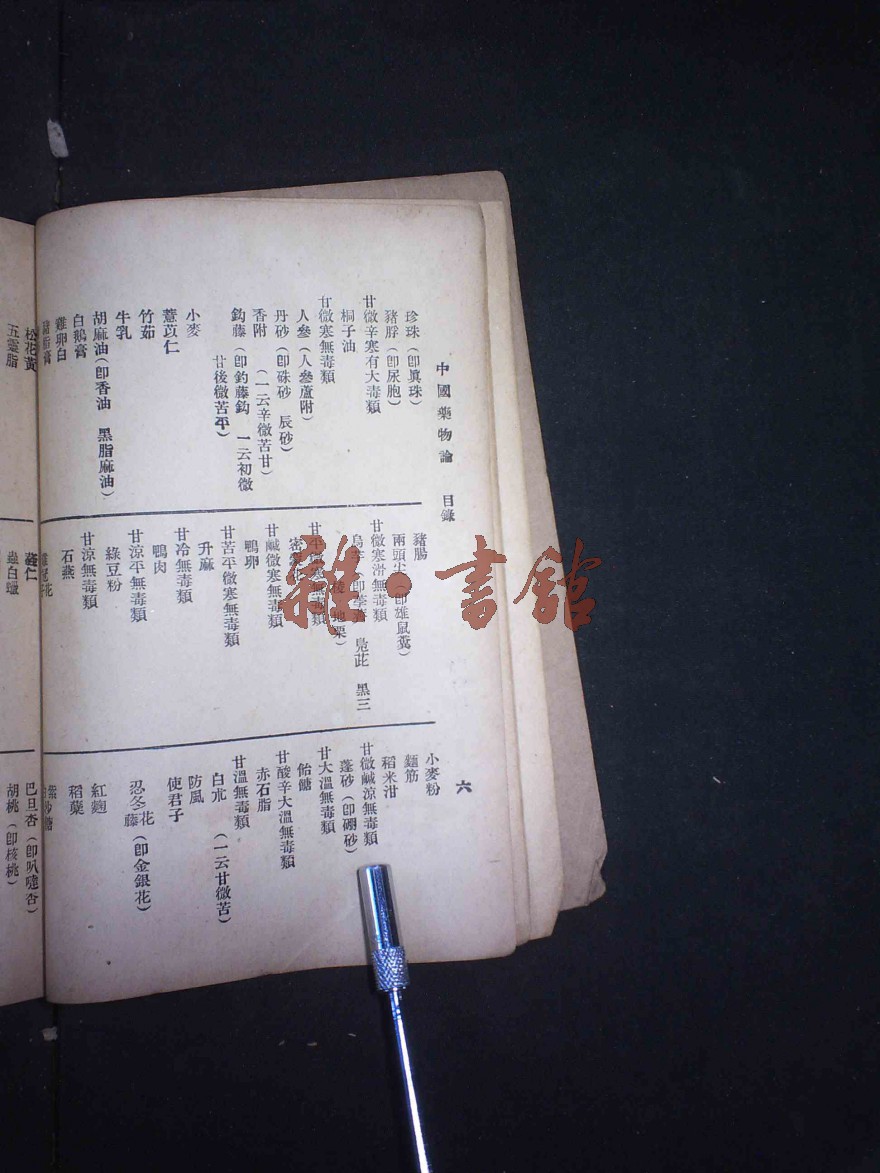 中國藥物論 目錄
六
珍珠(卽眞珠)
豬脬(卽尿胞)
甘微辛寒有大毒類
桐子油
甘微寒無毒類
人參(人參蘆附)
丹砂(卽硃砂 辰砂)
香附 (一云辛微苦甘)
鈎藤(卽釣藤鈎 一云初微
甘後微苦平)
小麥
薏苡仁
竹茹
牛乳
胡麻油(卽香油 黑脂麻油)
白鵝膏
雞卵白
豬脂膏
豬腸
兩頭尖(卽雄鼠糞)
甘微寒滑無毒類
鳧茈 黑三
地栗)
甘平微寒無毒類
甘鹹微寒無毒類
鴨卵
甘苦平微寒無毒類
升麻
甘冷無毒類
鴨肉
甘涼平無毒類
綠豆粉
甘涼無毒類
石燕
小麥粉
麵筋
稻米泔
甘微鹹涼無毒類
蓬砂(卽硼砂)
甘大溫無毒類
飴餹
甘酸辛大溫無毒類
赤石脂
甘溫無毒類
白朮 (一云甘微苦)
防風
使君子
忍冬花藤(卽金銀花)
紅麴
稻藁
松花黃
五靈脂
蕤仁
蟲白蠟
巴旦杏(卽叭噠杏)
胡桃(卽核桃)
雜·書館